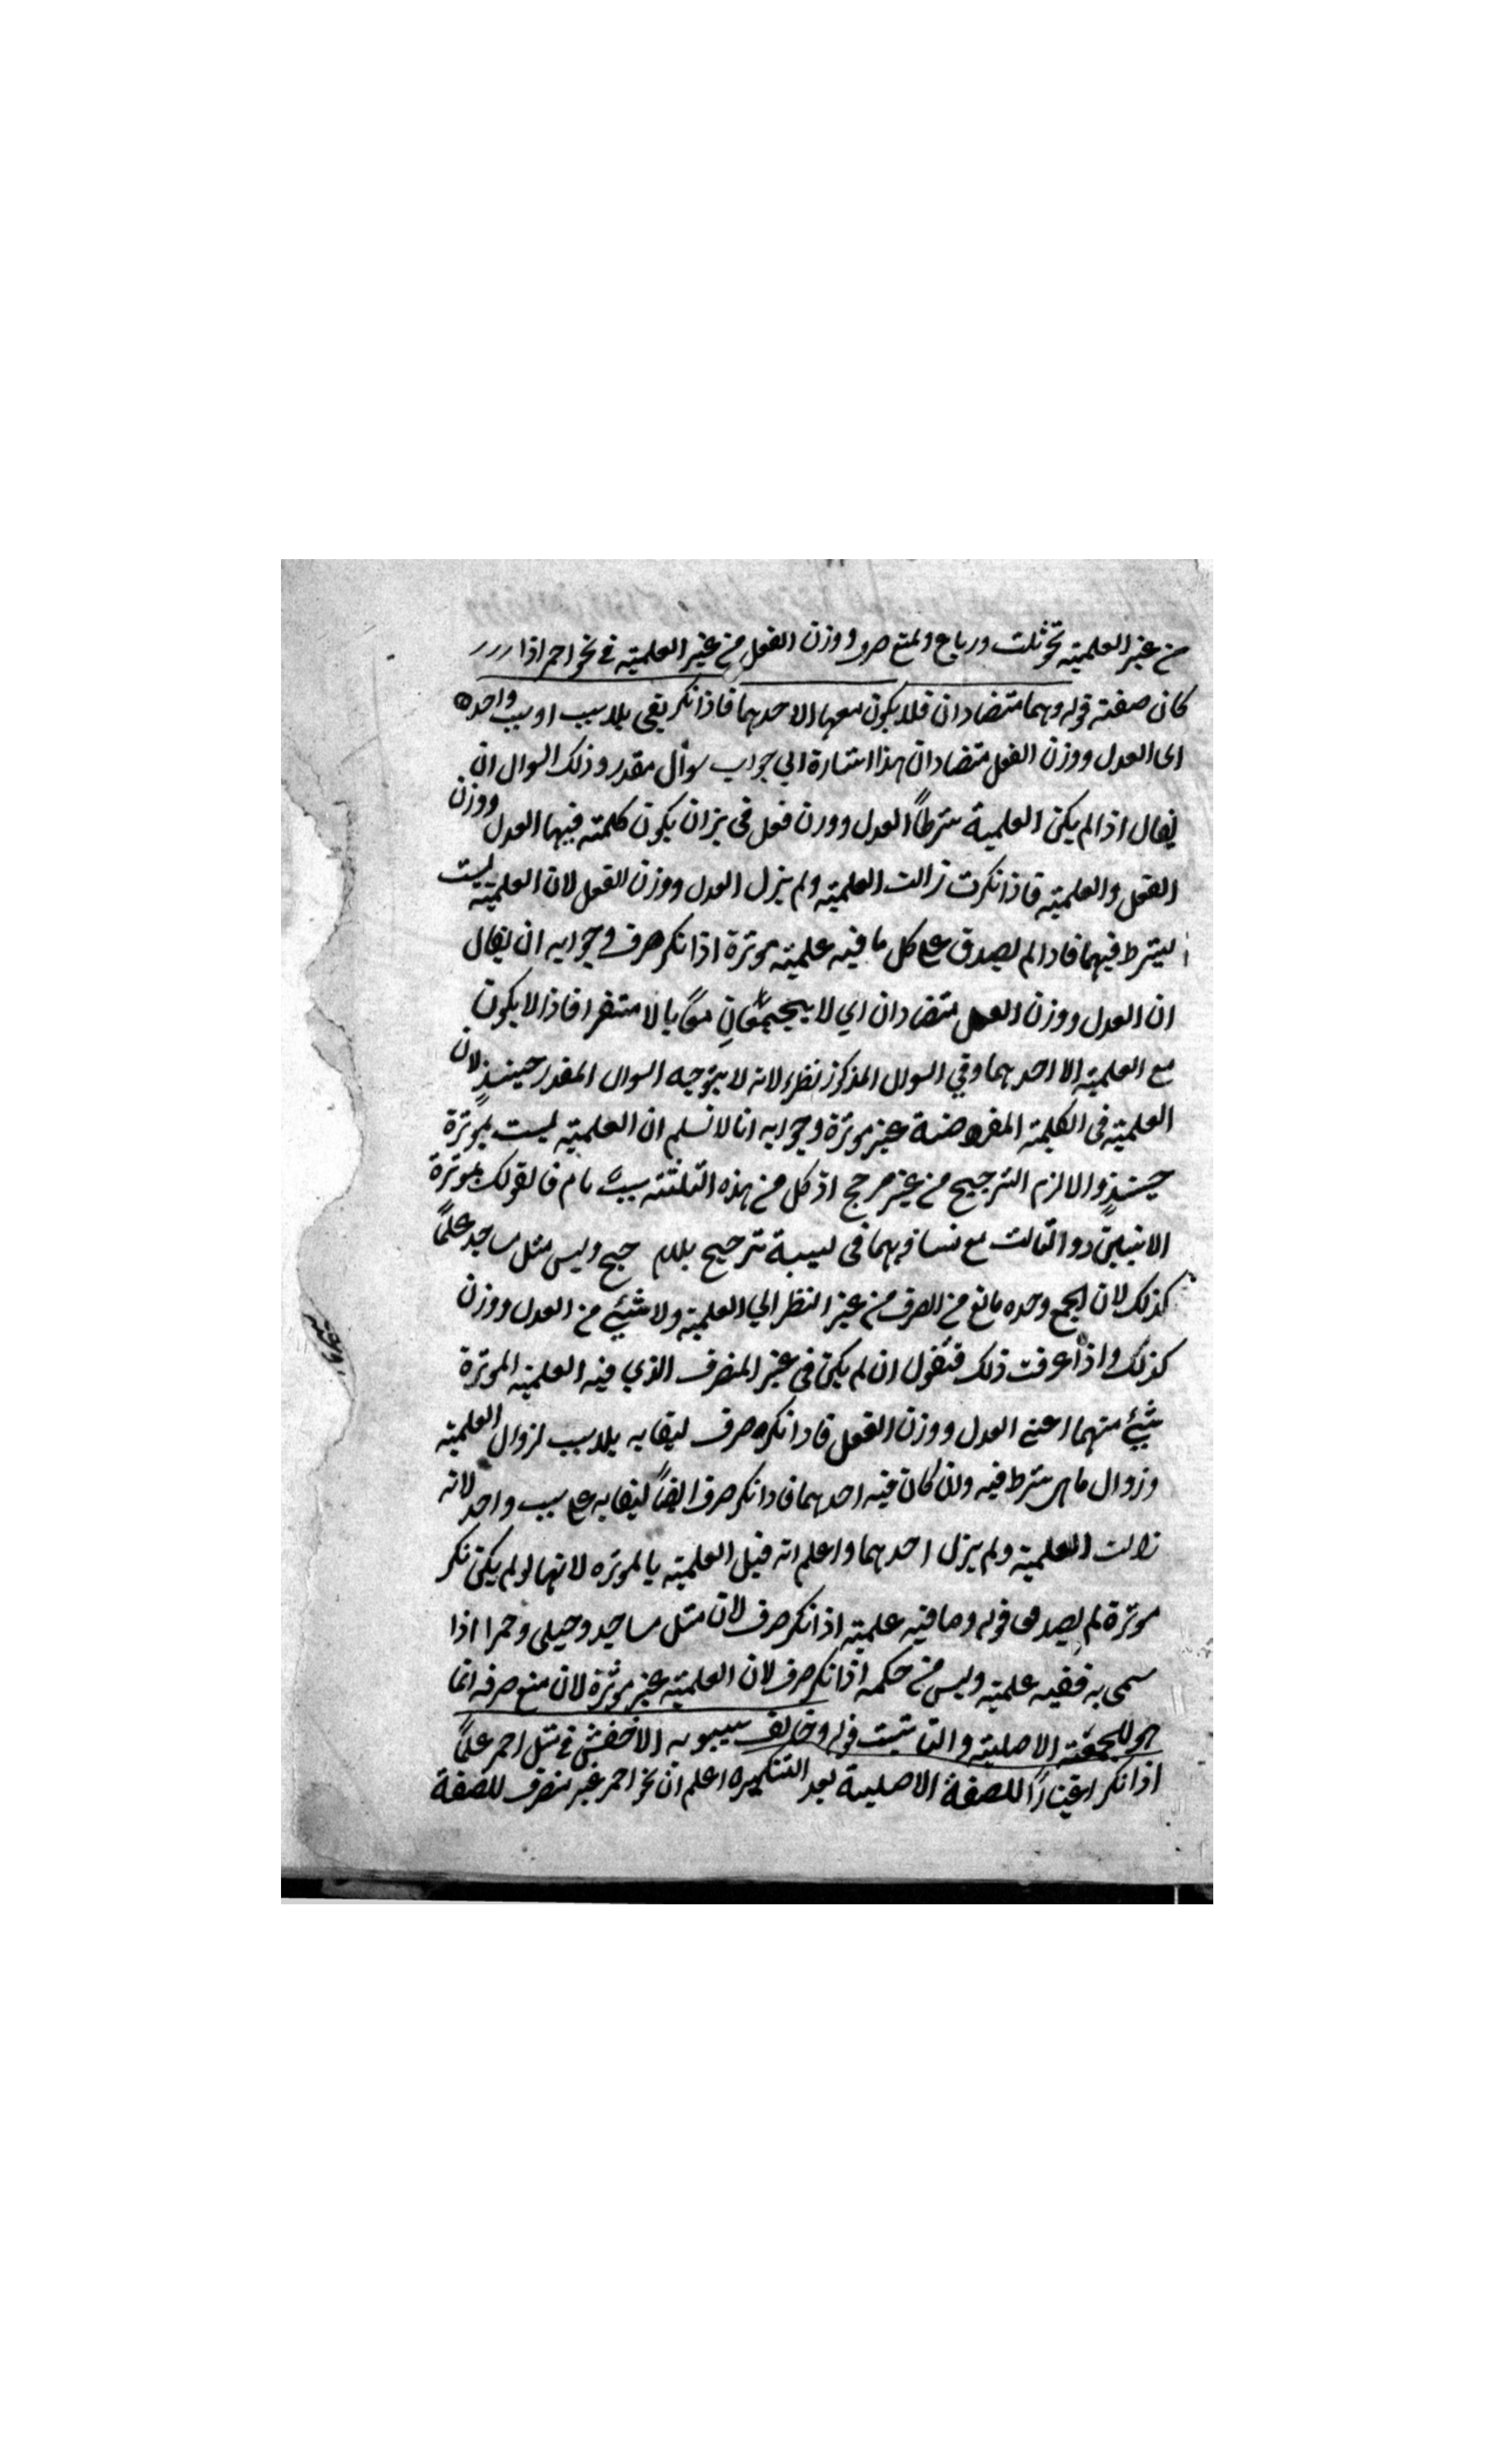 من غير العلمية نحو ثلث ورباع ولمنع صرف ووزن الفعل من غير العلمية في نحو احمر اذا
كان صفة قوله وهما متضادان فلا يكون معها الا احدهما فاذا نكر بقي بلا سبب او سبب واحد
اى العدل ووزن الفعل متضادان هذا اشارة الي جواب سوأل مقدر وذلك السوال ان
يقال اذا لم يكن العلمية شرطاً العدل ووزن فعل في ان يكون كلمة فيها العدل ووزن
الفعل والعلمية فاذا نكرت زالت العلمية ولم يزل العدل ووزن الفعل لان العلمية ليست
بشرط فيهما فاذا لم يصدق على كل ما فيه علمية موثرة اذا نكر صرف وجوابه ان يقال
ان العدل ووزن الفعل متضادان اي لا يجتمعان معًا بالاستقرا فاذا لا يكون
مع العلمية الا احدهما وفي السوال المذكور نظر لانه لا يتوجه السوال المقدر حينئذٍ لان
العلمية في الكلمة المفروضة غير موثرة وجوابه انا لا نسلم ان العلمية ليست بموثرة
حينئذٍ والا لزم الترجيح من غير مرجح اذ كل من هذه الثلثة سبب تام فالقولك موثرة
الاثنين دو الثالث مع تساويهما في لسببة ترجيح بلا جح وليس مثل مساجد علمًا
كذلك لان الجمع وحده مانع من الصرف من غير النظر الي العلمية ولا شيئ من العدل ووزن
كذلك واذا عرفت ذلك فنقول ان لم يكن في غير المنصرف الذي فيه العلمية الموثرة
شيئ منهما اعني العدل ووزن الفعل فاذا نكره صرف لبقايه بلا سبب لزوال العلمية
وزوال ما هي شرط فيه وان كان فيه احدهما فاذا نكر صرف ايضًا لبقايه على سبب واحد لانه
زالت العلمية ولم يزل احدهما واعلم انه قيل العلمية بالموثره لانها لو لم يكن نكر
موثرة لم يصدق قوله وما فيه علمية اذا نكر صرف لان مثل مساجد وحبلى وحمرا اذا
سمى به ففيه علمية وليس من حكمه اذا نكر صرف لان العلمية غير موثرة لان منع صرفه انما
هو للجمعية الاصلية والتانيث قوله وخالف سيبويه الاخفش في مثل احمر علمًا
اذا نكر اعتبارًا للصفة الاصلية بعد التنكيره اعلم ان نحو احمر غير منصرف للصفة